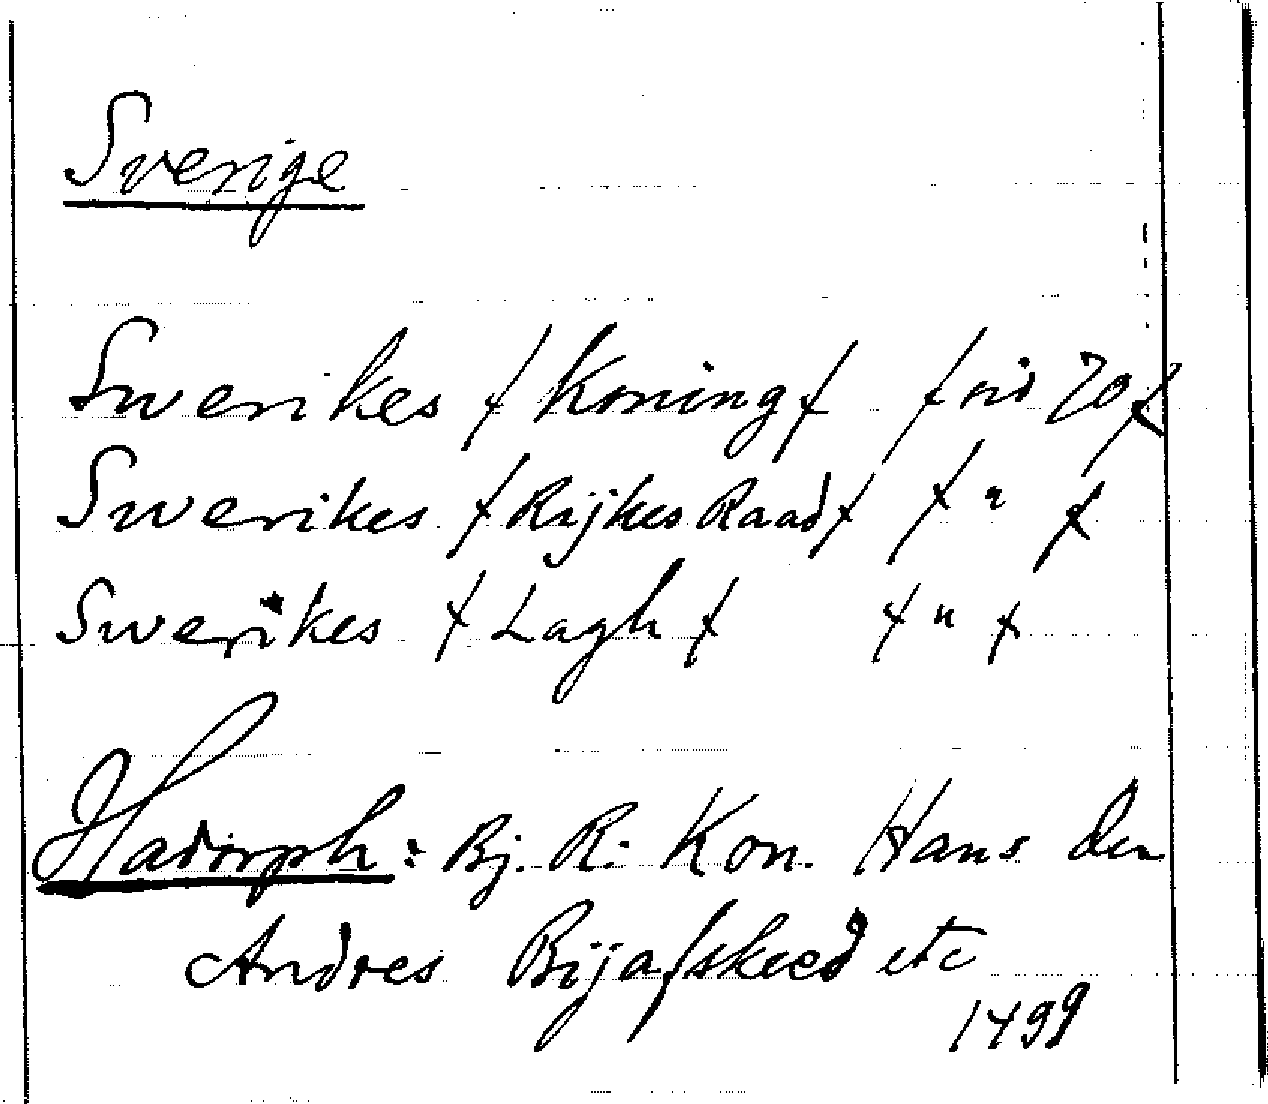 Sverige
Swerikes / Koning / / sid 70 /
Swerikes / Rijkes Raad / / " /
Swerikes / Lagh / / " /
Hadorph: Bj. R. Kon. Hans den
Andres Bijafskeed etc
1499